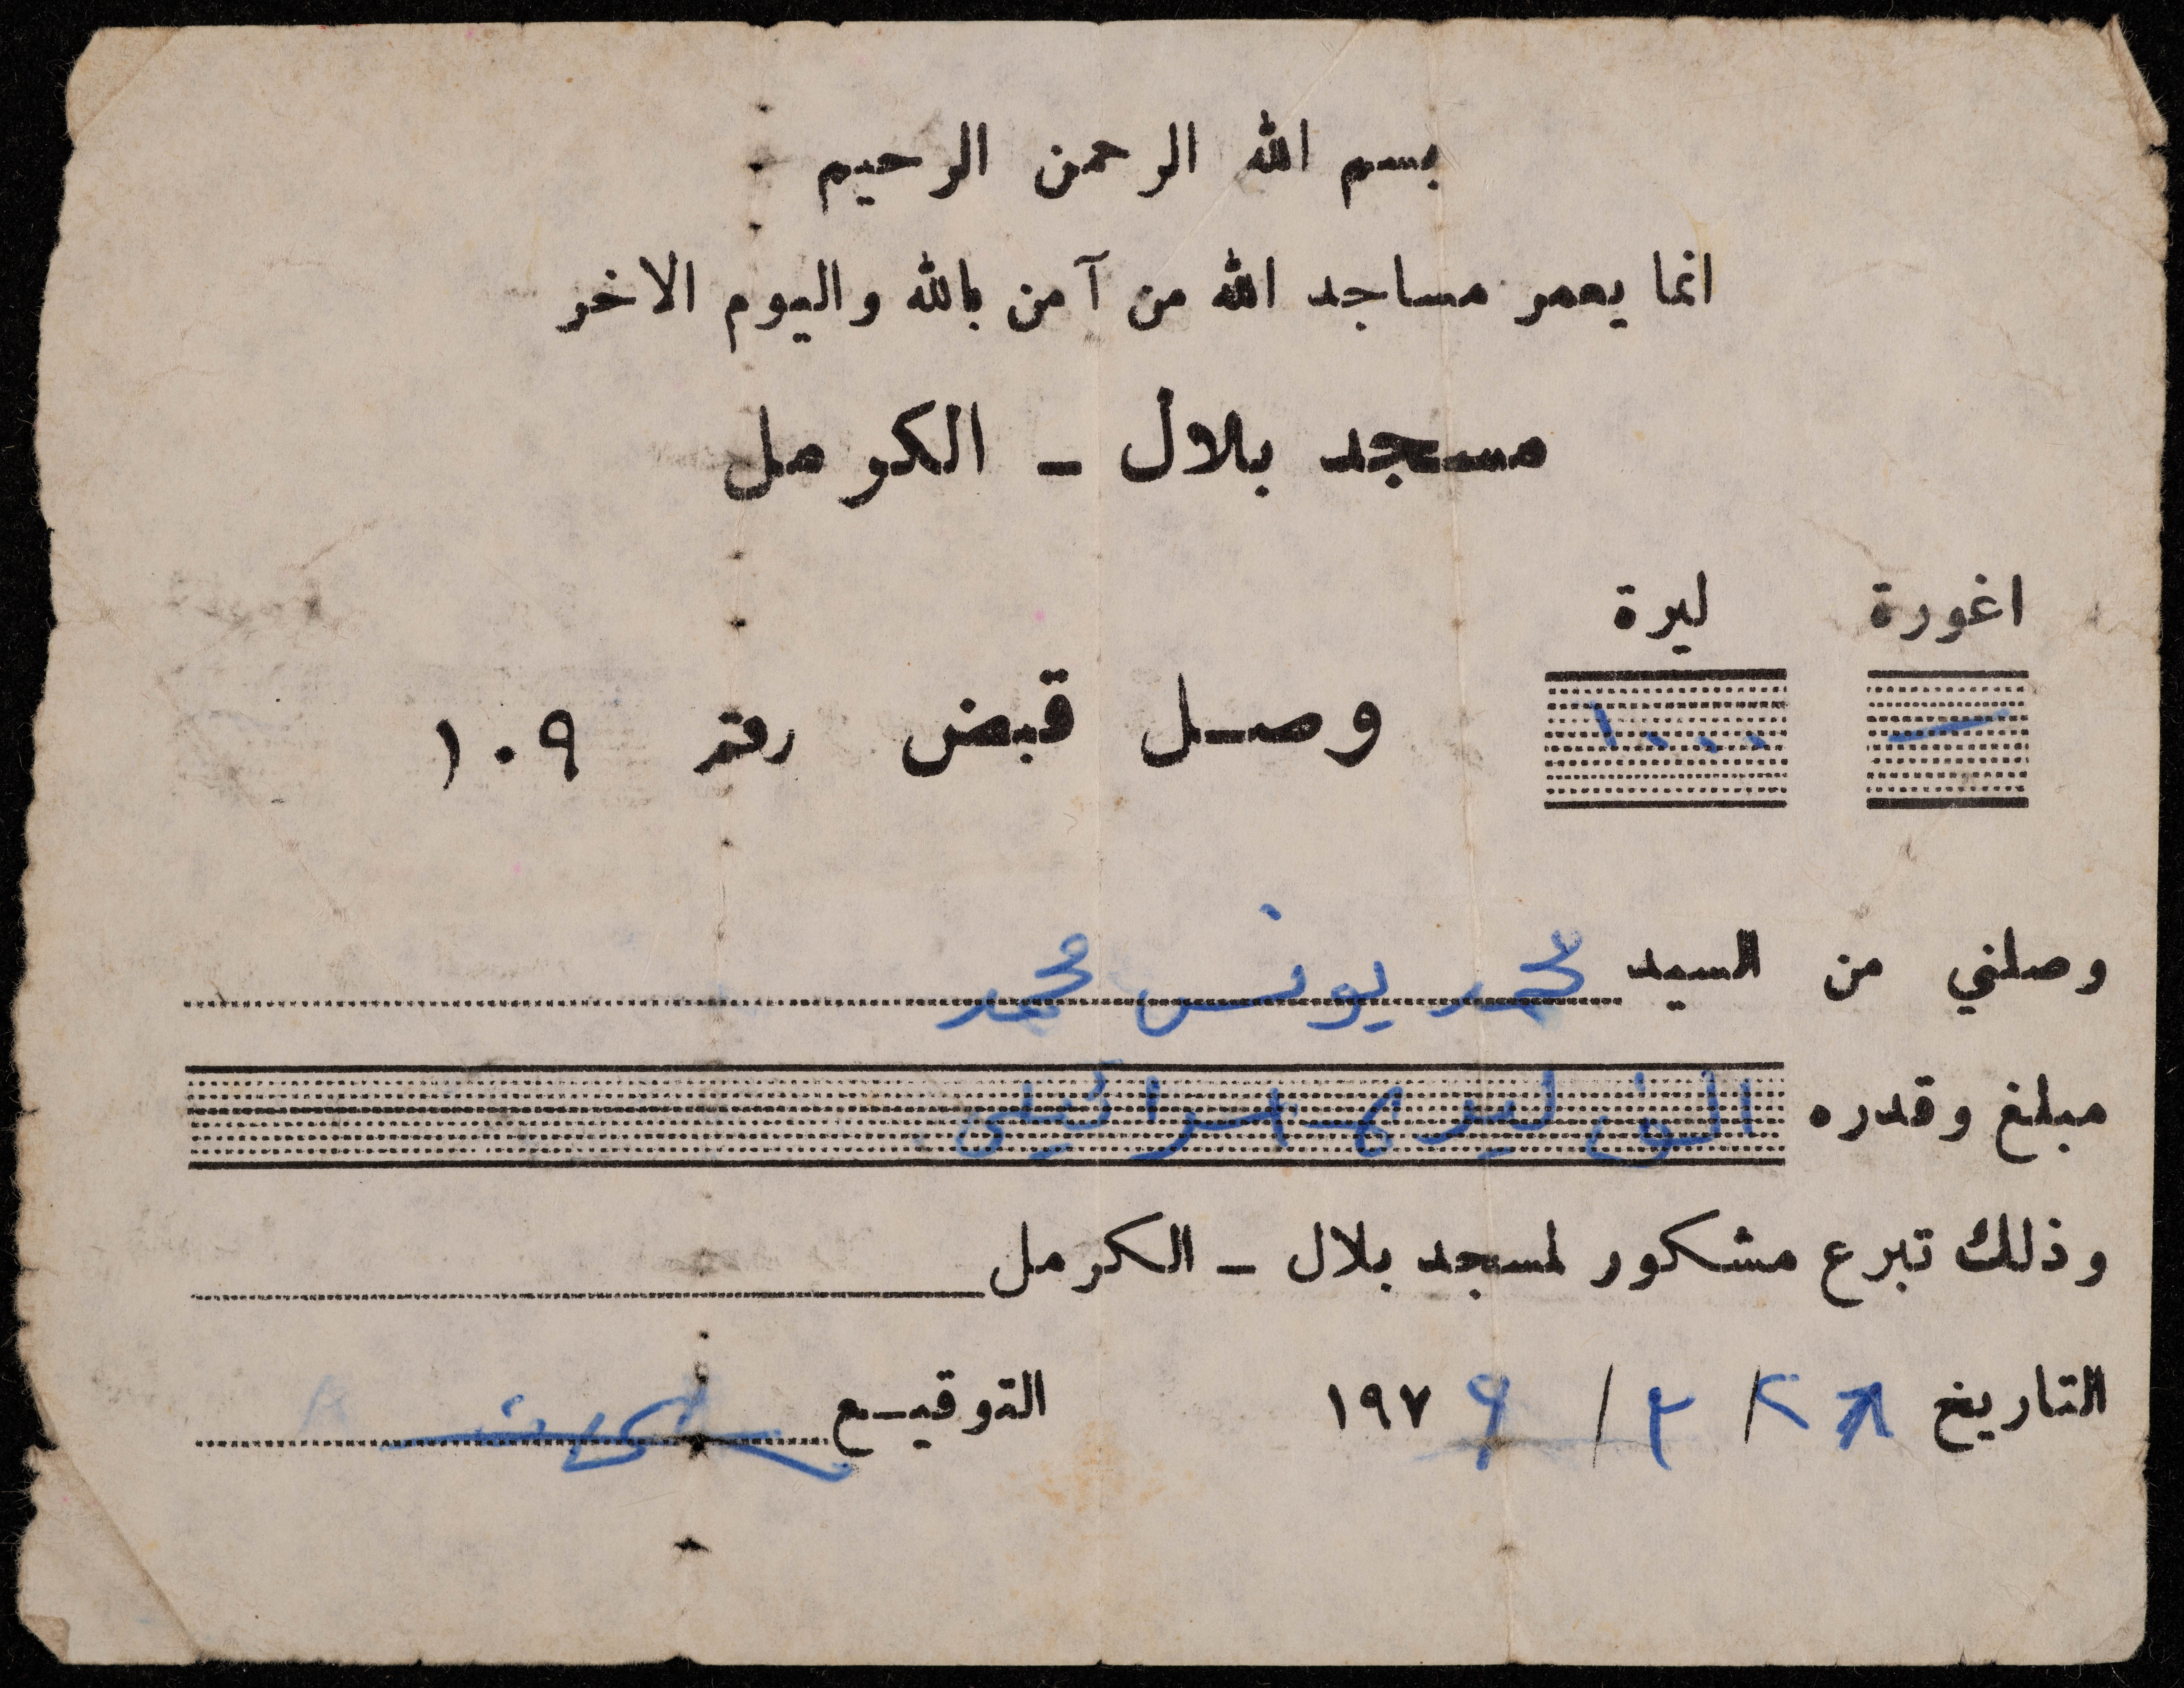 بسم الله الرحمن الرحيم
انما يعمر مساجد الله من آمن بالله واليوم الاخر
مسجد بلال - الكرمل
اغورة ليرة
وصل قبض رقم ١٠٩
وصلني من السيد محمد يونس محمد
مبلغ وقدره ليره اسرائيلي
وذلك تبرع مشكور لمسجد بلال - الكرمل
التاريخ / / ١٩٧٩ التوقيع